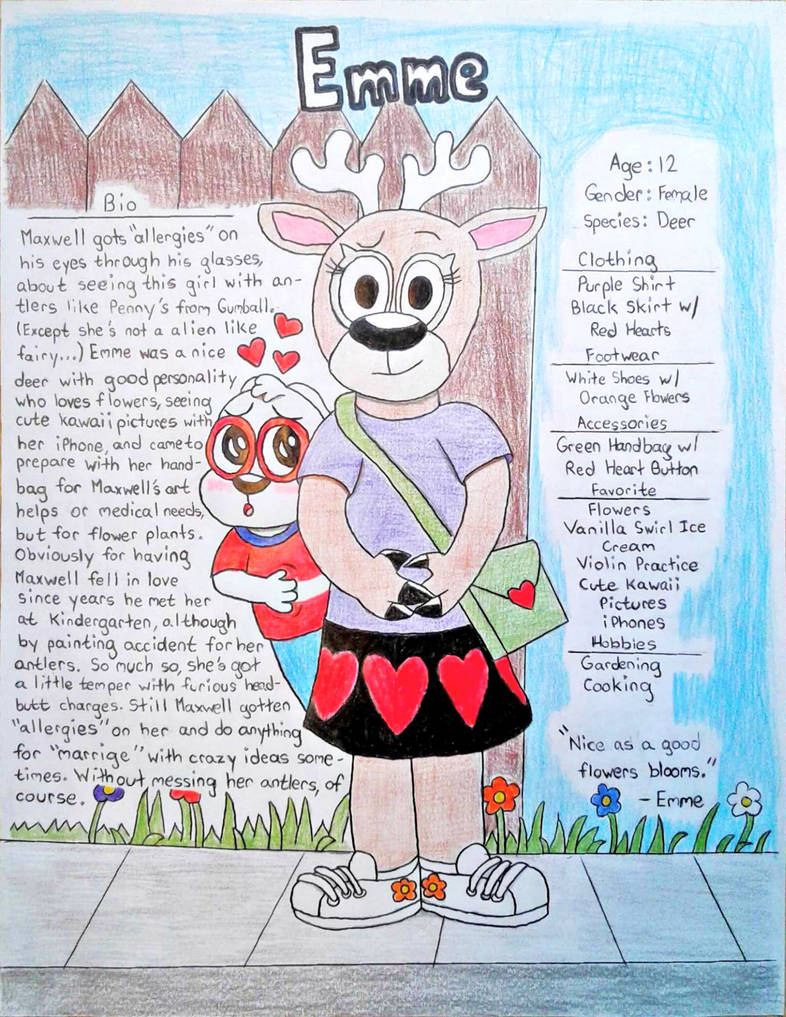 Emme
Bio
Maxwell gots "allergies" on
his eyes through his glasses,
about seeing this girl with an-
tlers like Penny's from Gumball.
(Except she's not a alien like
fairy...) Emme was a nice
deer with good personality
who loves flowers, seeing
cute kawaii pictures with
her iPhone, and came to
prepare with her hand-
bag for Maxwell's art
helps or medical needs,
but for flower plants.
Obviously for having
Maxwell fell in love
since years he met her
at Kindergarten, although
by painting accident for her
antlers. So much so, she's got
a little temper with furious head-
butt charges. Still Maxwell gotten
"allergies" on her and do anything
for "marrige" with crazy ideas some-
times. Without messing her antlers, of
course.
Age: 12
Gender: Female
Species: Deer
Clothing
Purple Shirt
Black Skirt w/
Red Hearts
Footwear
White Shoes w/
Orange Flowers
Accessories
Green Handbag w/
Red Heart Button
Favorite
Flowers
Vanilla Swirl Ice
Cream
Violin Practice
Cute Kawaii
Pictures
iPhones
Hobbies
Gardening
Cooking
"Nice as a good
flowers blooms."
- Emme